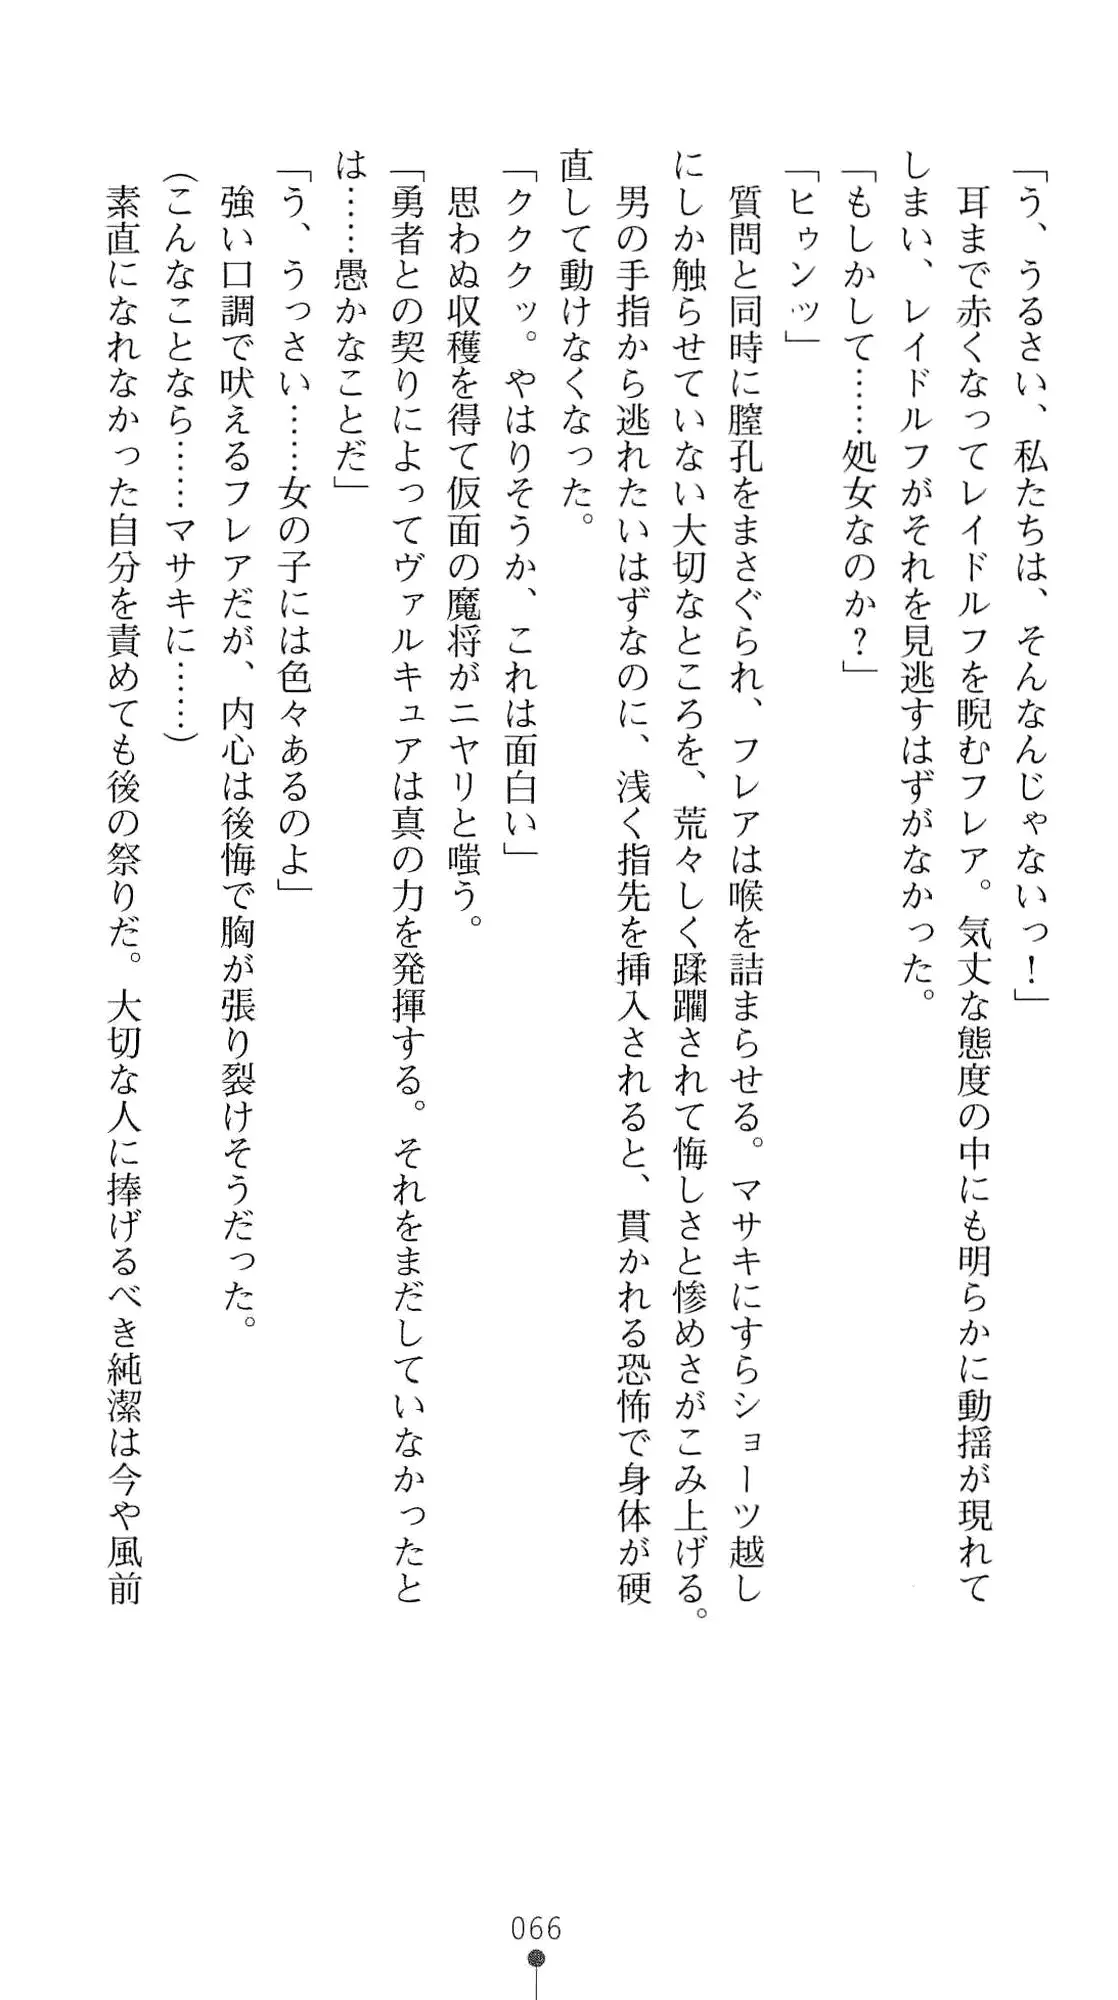 「う、うるさい、私たちは、そんなんじゃないっ！」
耳まで赤くなってレイドルフを睨むフレア。気丈な態度の中にも明らかに動揺が現れて
しまい、レイドルフがそれを見逃すはずがなかった。
「もしかして……処女なのか？」
「ヒゥンッ」
質問と同時に膣孔をまさぐられ、フレアは喉を詰まらせる。マサキにすらショーツ越し
にしか触らせていない大切なところを、荒々しく蹂躙されて悔しさと惨めさがこみ上げる。
男の手指から逃れたいはずなのに、浅く指先を挿入されると、貫かれる恐怖で身体が硬
直して動けなくなった。
「クククッ。やはりそうか、これは面白い」
思わぬ収穫を得て仮面の魔将がニヤリと嗤う。
「勇者との契りによってヴァルキュアは真の力を発揮する。それをまだしていなかったと
は……愚かなことだ」
「う、うっさい……女の子には色々あるのよ」
強い口調で吠えるフレアだが、内心は後悔で胸が張り裂けそうだった。
（こんなことなら……マサキに……）
素直になれなかった自分を責めても後の祭りだ。大切な人に捧げるべき純潔は今や風前
066